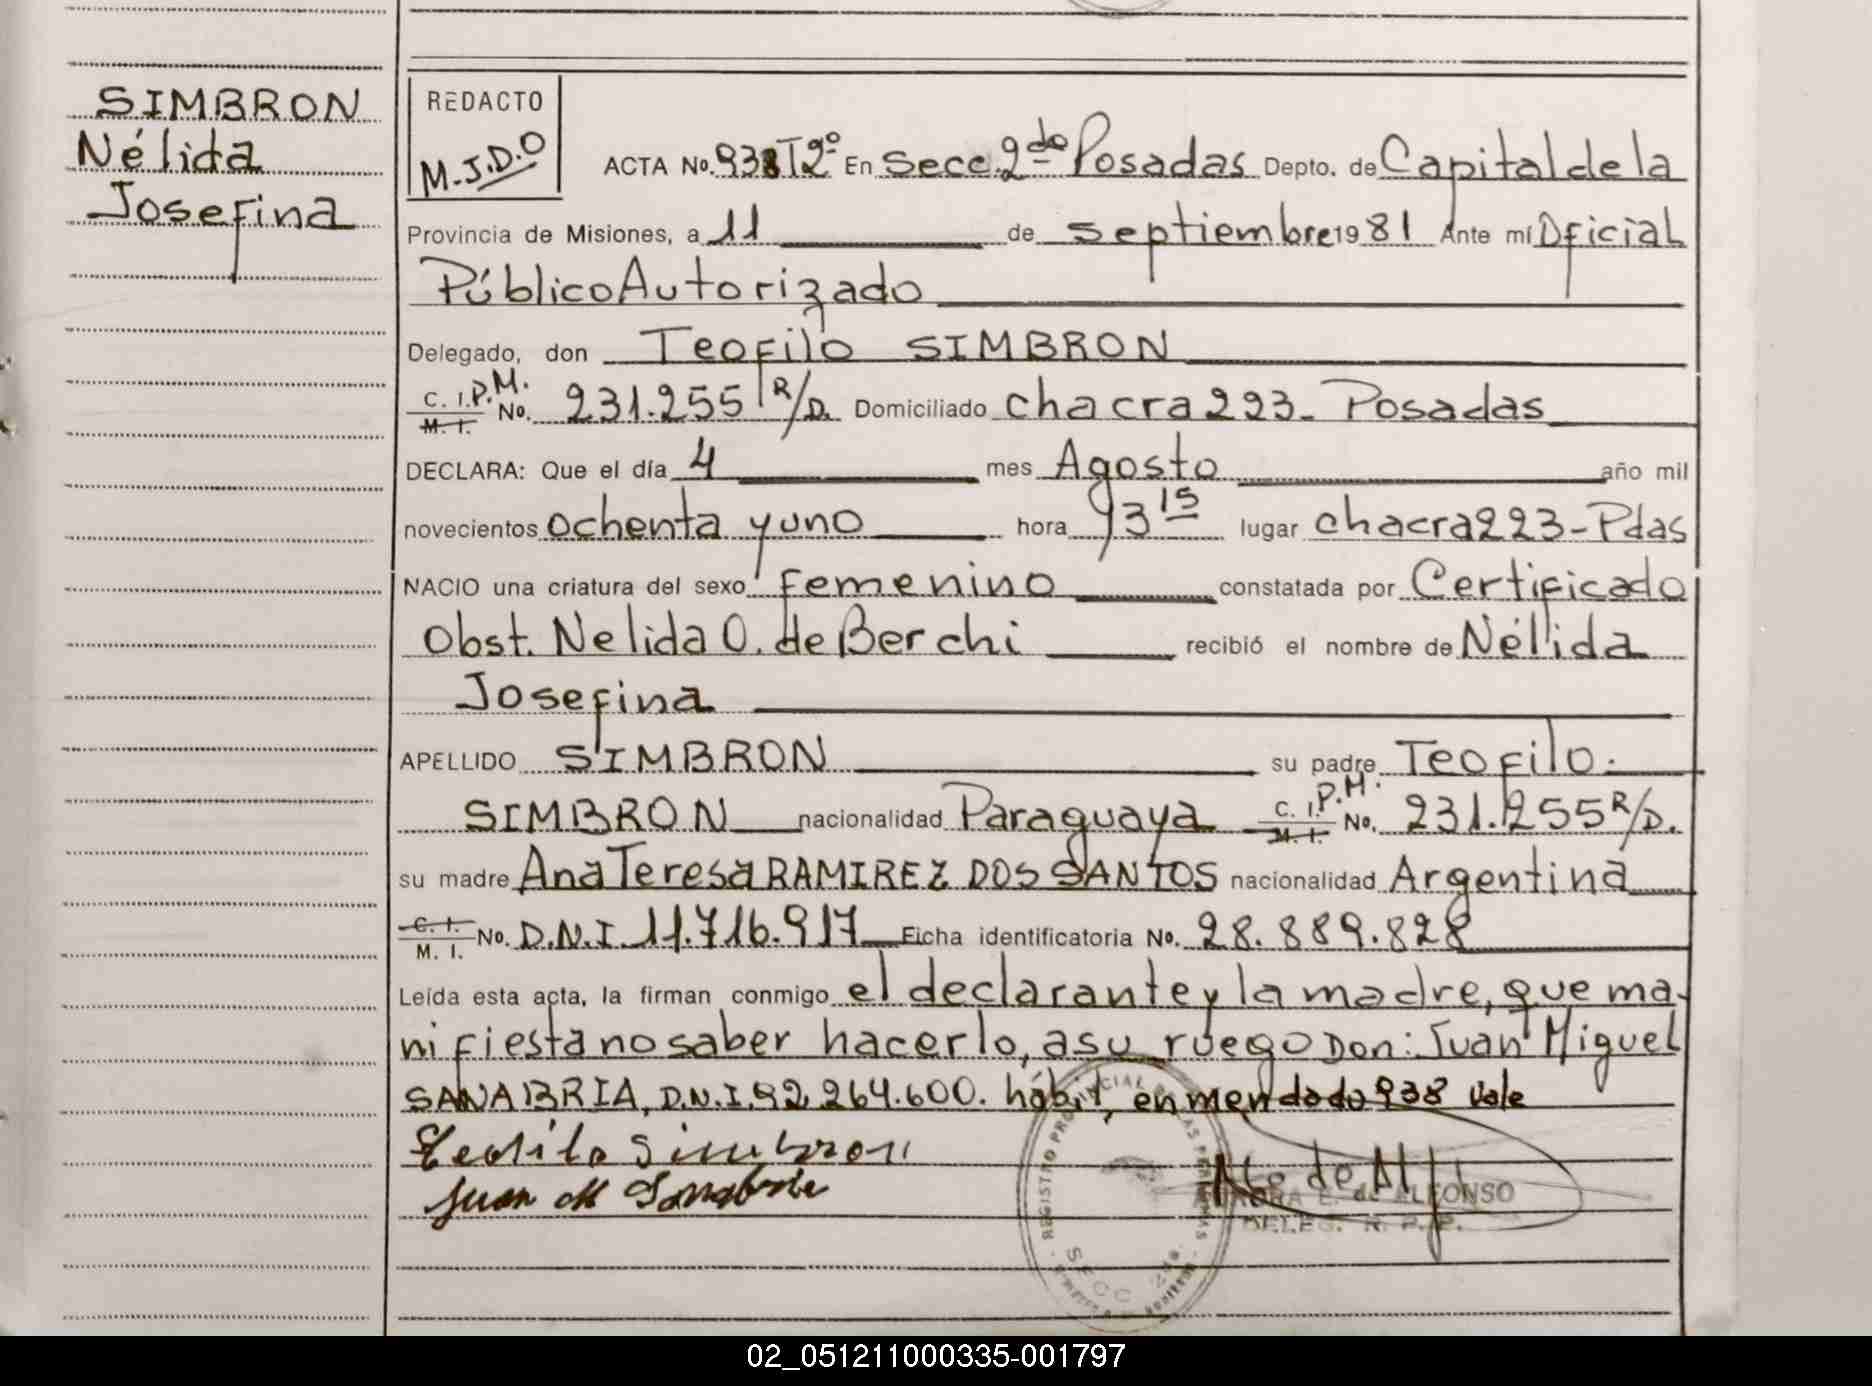 SIMBRON
Nélida
Josefina
REDACTO
M.J.D.O
ACTA No. 938 T2º En Secc. 2do Posadas Depto. de Capital de la
Provincia de Misiones, a 11 de septiembre 19 81 Ante mí Oficial
Público Autorizado
Delegado, don Teofilo SIMBRON
C. I. P.M. M. I. No. 231.255 R/D. Domiciliado chacra 223 - Posadas
DECLARA: Que el día 4 mes Agosto año mil
novecientos ochenta y uno hora 93 15 lugar chacra 223 - Pdas
NACIO una criatura del sexo femenino constatada por Certificado
Obst. Nelida O. de Berchi recibió el nombre de Nélida
Josefina
APELLIDO SIMBRON su padre Teofilo.
SIMBRON nacionalidad Paraguaya C. I. P.M. M. I. No. 231.255 R/D.
su madre Ana Teresa RAMIREZ DOS SANTOS nacionalidad Argentina
C. I. M. I. No. D.N.I. 11.716.917 Ficha identificatoria No. 28.889.828
Leída esta acta, la firman conmigo el declarante y la madre, que ma-
nifiesta no saber hacerlo, a su ruego Don: Juan Miguel
SANABRIA, D.N.I. 92.264.600. hábil, enmendado 938 Vale
Teofilo Simbron
Juan M Sanabria
REGISTRO PROVINCIAL DE LAS PERSONAS
SECC 2da
E. de ALFONSO
DELEG. R. P. P.
02_051211000335-001797